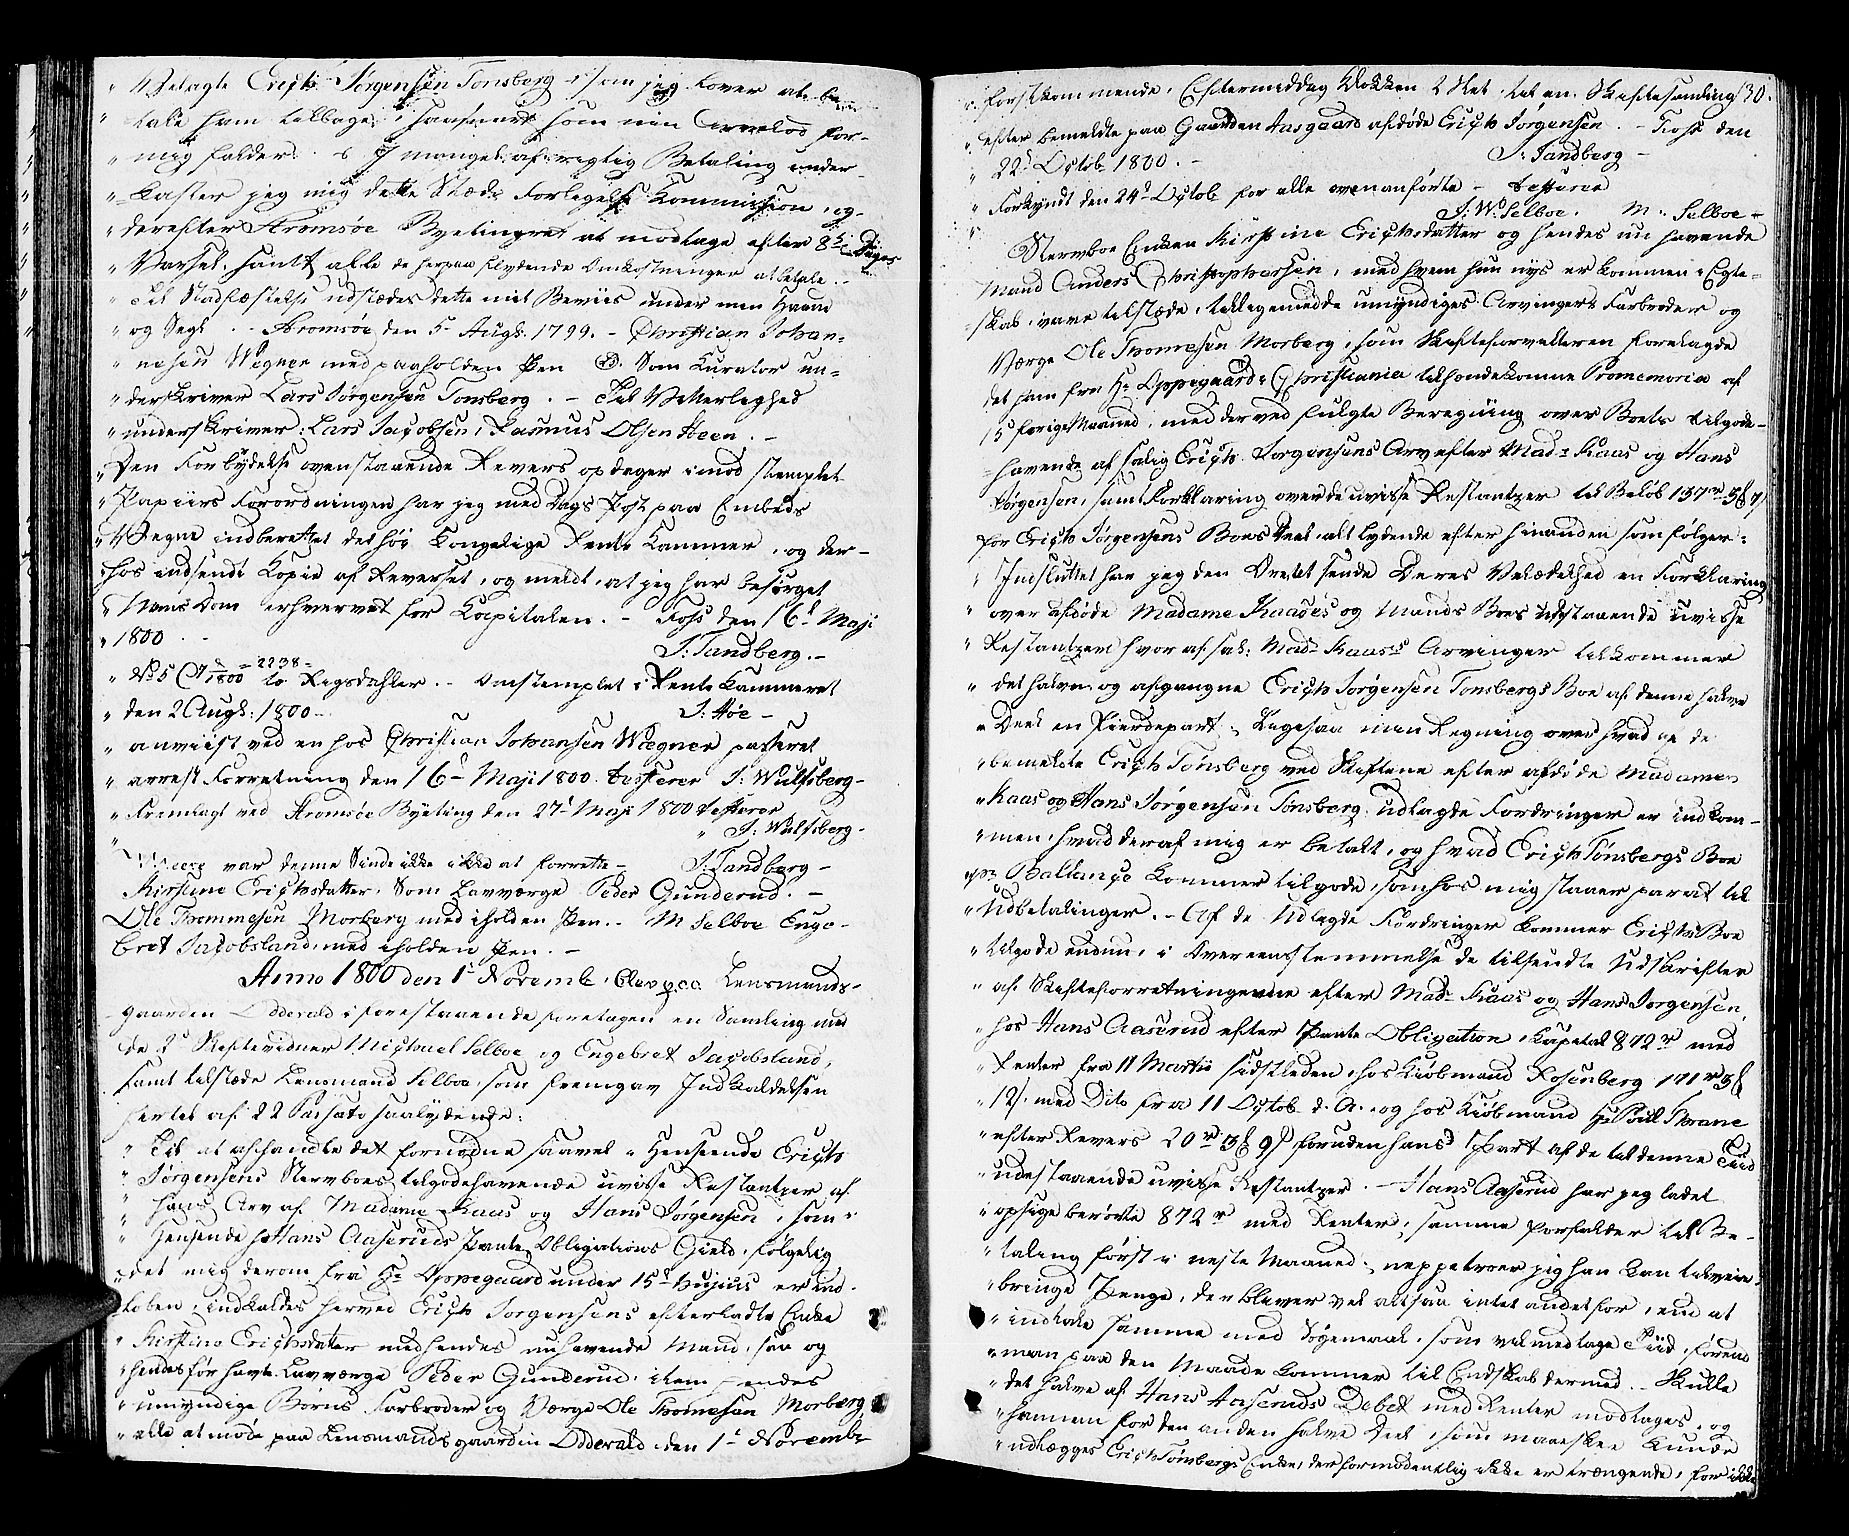 " Velagte Erich Jørgensen Tonsberg, som jeg lover at be-
" tale ham tilbage, i saasnart som min Arvelod for-
" mig falder. I mangel af rigtig Betaling under-
" kaster jeg mig dette Stæds Forligelses Kommission, og
" derefter Stromsøe Byetingsret at modtage efter 8te Dages
" Varsel, samt alle de herpaa flydende Omkostninger at betale. -
" Til Stadfæstelse udstædes dette mit Beviis under min Haand
" og Segl. - Stromsøe den 5te Augs. 1799. - Christian Johan-
" nesen Wegner med paaholden Pen. Som Kurator un-
" derskriver Lars Jørgensen Tonsberg. - Til Vitterlighed
" underskriver: Lars Jacobsen, Rasmus Olsen Steen. -
" Den Forbrydelse ovenstaaende Revers opdager imod stemplet
" Papiirs Forordningen har jeg med Dags Post paa Embeds
" Vegne indberettet det høie Kongelige Rente Kammer, og der-
" hos indsendt Kopie af Reverset, og meldt, at jeg har besørget
" Nams Dom erhvervet for Kapitalen. - Foss den 16de Maji
" 1800. - J: Tandberg. -
" No 5 1800 - 2238 - to Rigsdahler. - Omstemplet i Rente Kammeret
" den 2 Augs: 1800 - J: Høe -
" anviist ved en hos Christian Johansen Wegner passeret
" arrest Forretning den 16de Maji 1800. testerer J: Wulfsberg -
" Fremlagt ved Stromsøe Byeting den 27de Maji 1800 testerer
" J: Wulfsberg -
Meere var denne Sinde ikke at forrette - J: Tandberg -
Kirstine Erichsdatter. Som Lavværge Peder Gunderud. -
Ole Thommesen Morberg med iholden Pen. - M Selboe Enge-
bret Jacobsland, med iholden Pen. -
Anno 1800 den 1te Novemb. blev paa Lensmands-
gaarden Odderald i forestaaende foretagen en Samling med
de 2de Skiftevidner Michael Selboe og Engebret Jacobsland,
samt tilstæde Lensmand Selboe, som fremgav Indkaldelsen
hertil af 22 Passato saalydende:
" Til at afhandle det fornødne saavel i Henseende Erich
" Jørgensens Stervboes tilgodehavende uvisse Restantzer af
" hans Arv af Madame Kaas og Hans Jørgensen, som i
" Henseende Hans Aaseruds Pante Obligations Gield, følgelig
" det mig derom fra Hr Oppegaard under 15de hujus er ind-
" løben, indkaldes herved Erich Jørgensens efterladte Enke
" Kirstine Erichsdatter med hendes nuhavende Mand, saa og
" hendes før havte Lavværge Peder Gunderud, item hendes
" umyndige Børns Farbroder og Værge Ole Thomesen Morberg
" alle at møde paa Lensmandsgaarden Odderald den 1te Novembr
" førstkommende, Eftermiddag Klokken 2 Slet til en Skiftesamling 130.
" efter bemeldte paa Gaarden Aasgaard afdøde Erich Jørgensen. - Foss den
" 22de Octob 1800. - J: Tandberg -
" Forkyndt den 24de Octob for alle ovenanførte - testerer
" J: W. Selboe. M: Selboe -
Stervboe Enken Kirstine Erichsdatter og hendes nu havende
Mand Anders Christophersen, med hvem hun nys er kommen i Egte-
skab, vare tilstæde, tilligemed de umyndiges Arvingers Farbroder og
Værge Ole Thomesen Morberg, som Skifteforvalteren forelagde
det ham fra Hr Oppegaard i Christiania tilhændekomne Promemoria af
15de forige Maaned, med derved fulgte Beregning over Boets tilgode-
havende af salig Erich Jorgensens Arv efter Mad: Kaas og Hans
Jørgensen, samt Forklaring over de uvisse Restantzer til Beløb 137rd 3f 7s
for Erich Jørgensens Boes Deel, alt lydende efter hinanden som følger:
" Indsluttet har jeg den Ære at sende Deres Velædelhed en Forklaring
" over afdøde Madame Kaases og Mands Boes udstaaende uvisse
" Restantzer hvoraf sal: Mad: Kaases Arvinger tilkommer
" det halve, og afgangne Erich Jørgensen Tonsbergs Boe af denne halve
" Deel en Fierdepart, Ligesaa min Regning over hvad af de
" bemeldte Erich Tønsberg ved Skiftene efter afdøde Madame
" Kaas og Hans Jørgensen Tønsberg udlagde Fordringer er indkom-
" men, hvad deraf mig er betalt, og hvad Erich Tønsbergs Boe
pr Ballance kommer tilgode, som hos mig staaer parat til
" Udbetalinger. - Af de Udlagde Fordringer kommer Erichs Boe
" tilgode endnu, i Overeensstemmelse de tilsendte Udskrifter
" af Skifteforretningerne efter Mad: Kaas og Hans Jorgensen,
" hos Hans Aaserud efter Pante Obligation, Kapital 872rd med
" Renter fra 11 Martii sidstleden, hos Kiøbmand Rosenberg 171rd 3f
" 12s. med Dito fra 11 Octob d. A. og hos Kiøbmand Hr Poul Thrane
" efter Revers 20rd 3f 9s foruden hans Part af de til denne Tiid
" udestaaende uvisse Restantzer. - Hans Aaserud har jeg ladet
" opsige berørte 872rd med Renter, samme forfalder til Be-
" taling først i neste Maaned, neppe troer jeg han kan tilveie-
" bringe Penge, der bliver vel altsaa intet andet for, end at
" indtale samme med Søgemaal, som vil medtage Tiid, forend
" man paa den Maade kommer til Endskab dermed. - Skulle
" det halve af Hans Aaseruds Debet med Renter modtages, og
" hannem for den anden halve Deel, som maaskee kunde
" udlægges Erich Tønsbergs Enke, der formodentlig ikke er trængende, for ikke